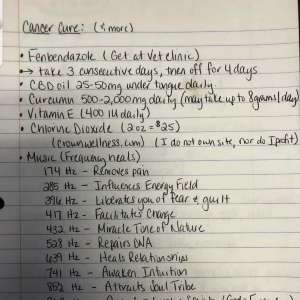 Cancer Cure: (& more)
• Fenbendazole (Get at Vet clinic)
→ take 3 consecutive days, then off for 4 days
• CBD oil 25-50mg under tongue daily.
• Curcumin 500-2,000mg daily (may take up to 8 grams/day)
• Vitamin E (400 IU daily)
• Chlorine Dioxide (2oz = $25)
(crownwellness.com) (I do not own site, nor do I profit)
• Music (Frequency heals)
174 Hz - Removes pain
285 Hz - Influences Energy Field
396 Hz - Liberates you of fear & guilt
417 Hz - Facilitates Change
432 Hz - Miracle Tone of Nature
528 Hz - Repairs DNA
639 Hz - Heals Relationships
741 Hz - Awaken Intuition
852 Hz - Attracts Soul Tribe